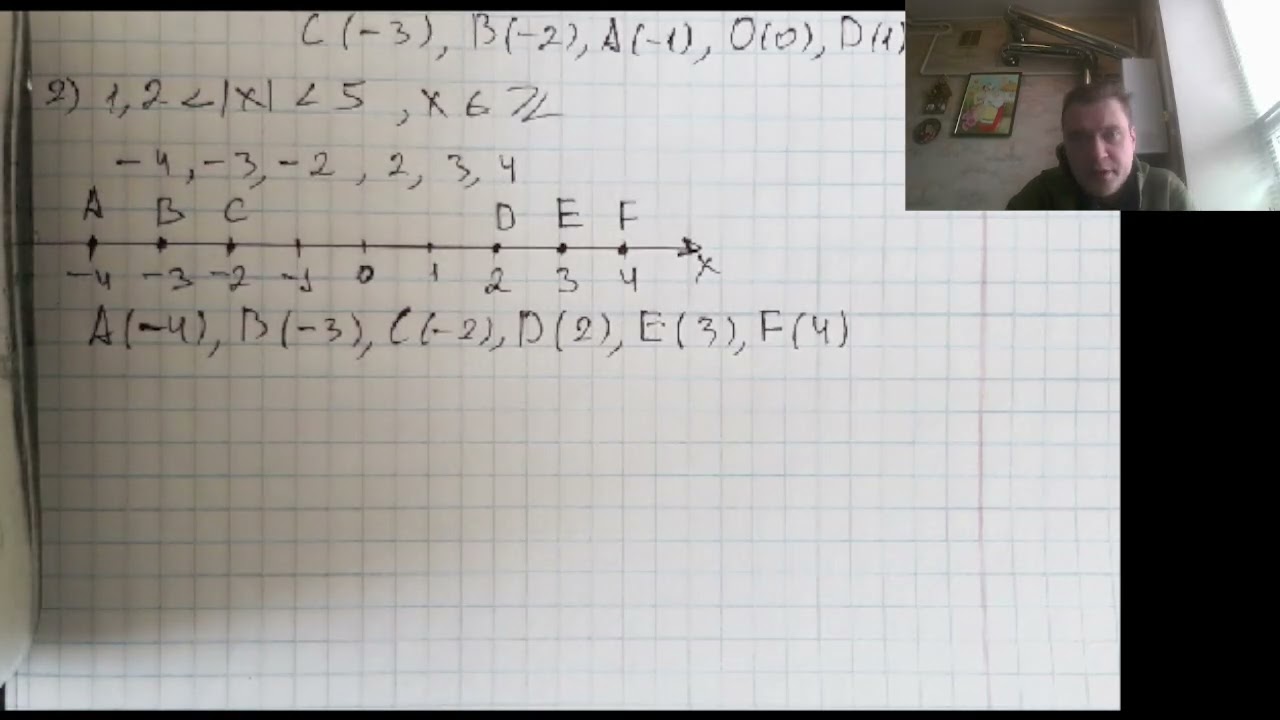 C(-3), B(-2), A(-1), O(0), D(1)
2) 1,2 < |x| < 5 , x ∈ ℤ
-4, -3, -2, 2, 3, 4
A B C D E F
-4 -3 -2 -1 0 1 2 3 4 x
A(-4), B(-3), C(-2), D(2), E(3), F(4)